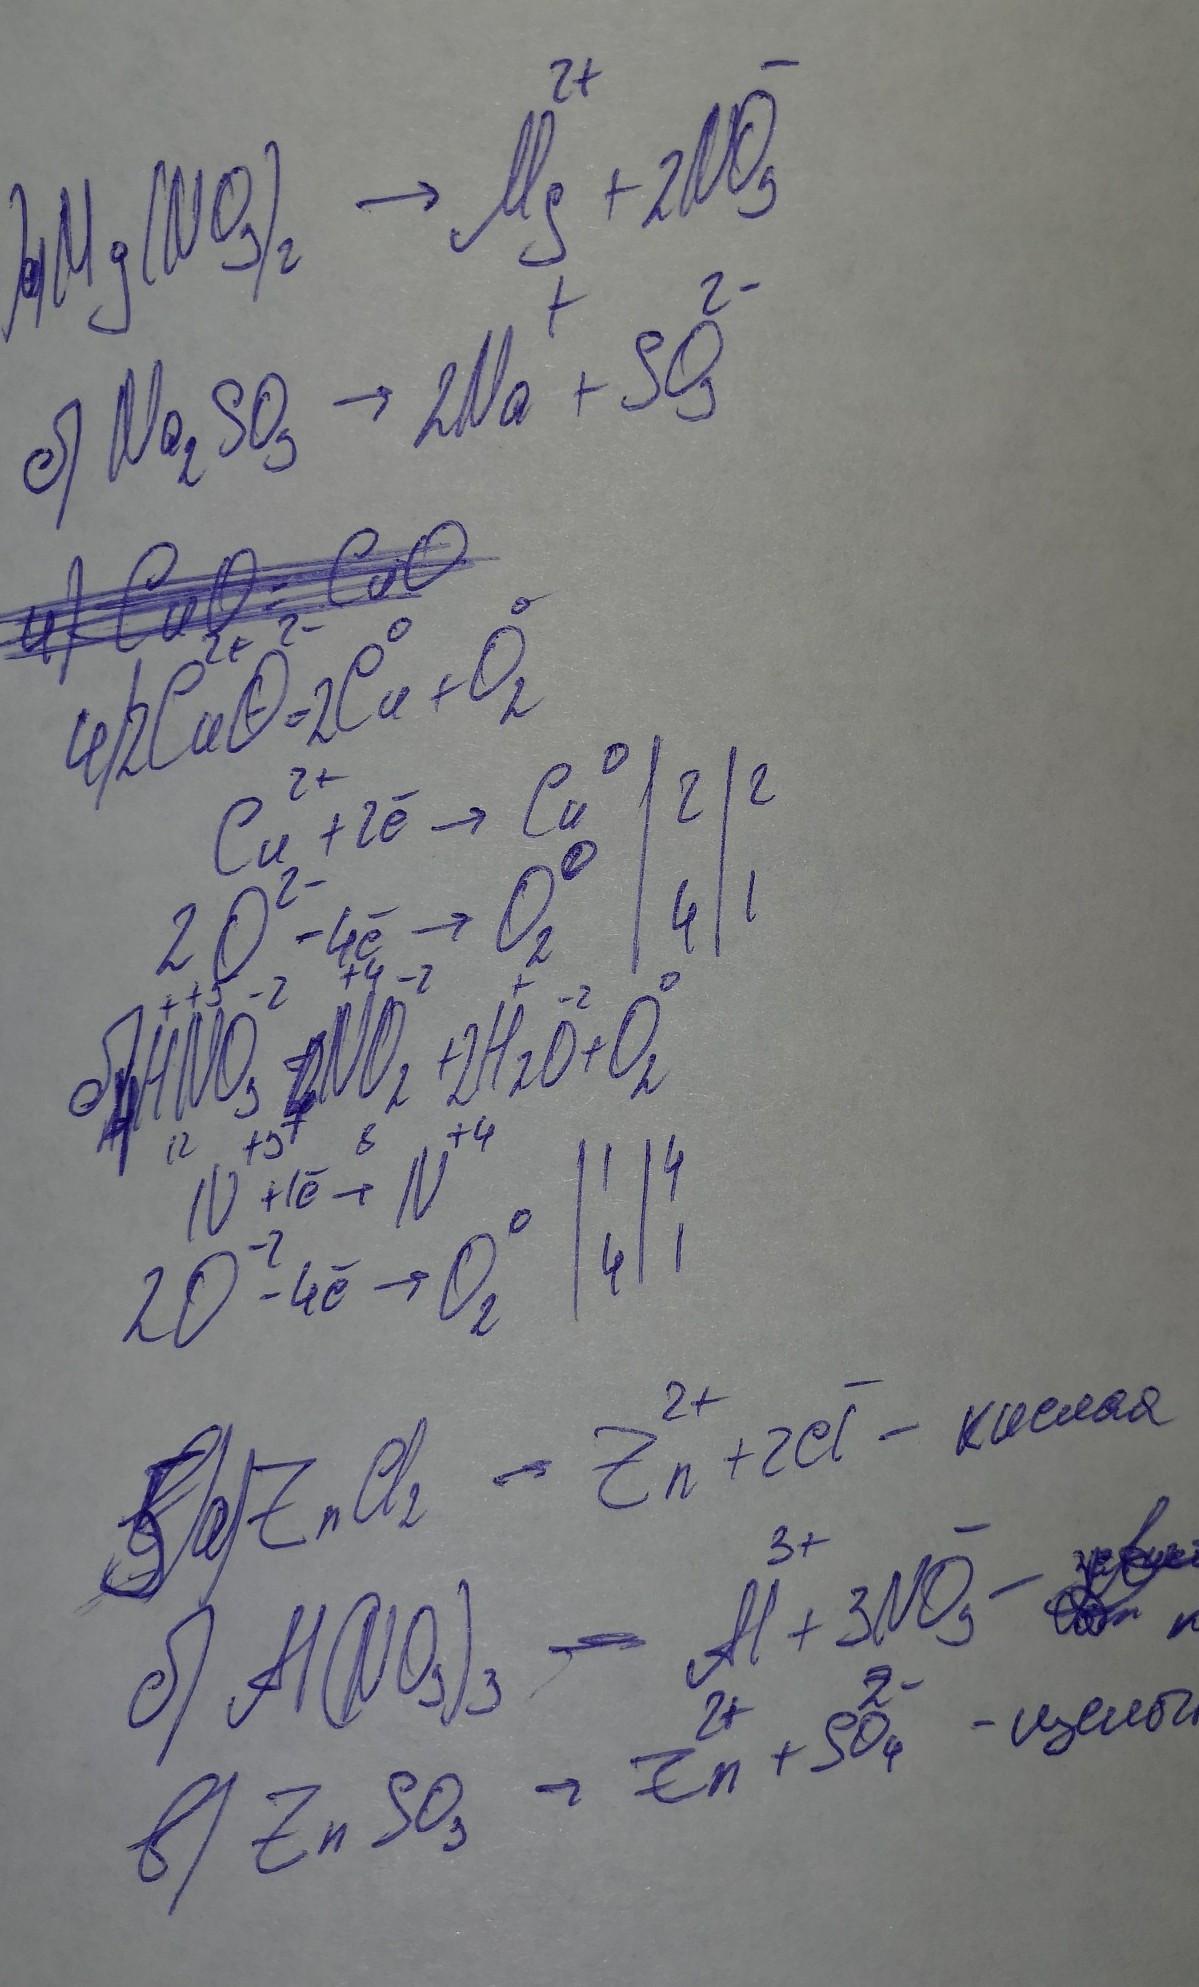 а) Mg(NO₃)₂ → Mg²⁺ + 2NO₃⁻
б) Na₂SO₃ → 2Na⁺ + SO₃²⁻
4) CuO = CuO
4) 2Cu²⁺O²⁻ = 2Cu⁰ + O₂⁰
Cu²⁺ + 2ē → Cu⁰ | 2 | 2
2O²⁻ - 4ē → O₂⁰ | 4 | 1
б) 4H⁺N⁺⁵O₃⁻² = 4N⁺⁴O₂⁻² + 2H₂⁺O⁻² + O₂⁰
12 8
N⁺⁵ + 1ē → N⁺⁴ | 1 | 4
2O⁻² - 4ē → O₂⁰ | 4 | 1
5) а) ZnCl₂ → Zn²⁺ + 2Cl⁻ - кислая
б) Al(NO₃)₃ — Al³⁺ + 3NO₃⁻ -
в) ZnSO₃ → Zn²⁺ + SO₄²⁻ - щелоч